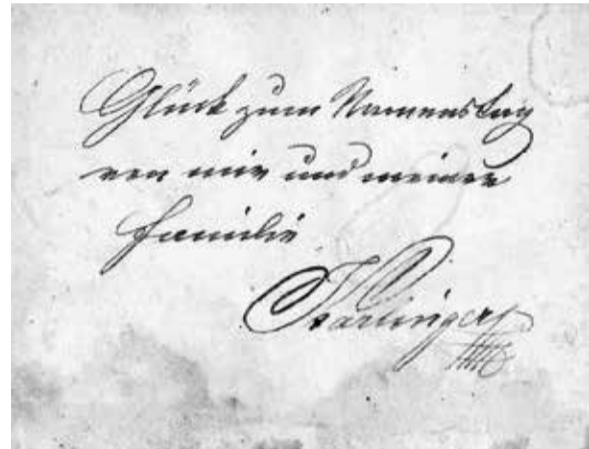 Glück zum Namenstag
von mir und meiner
Familie
Karlinger